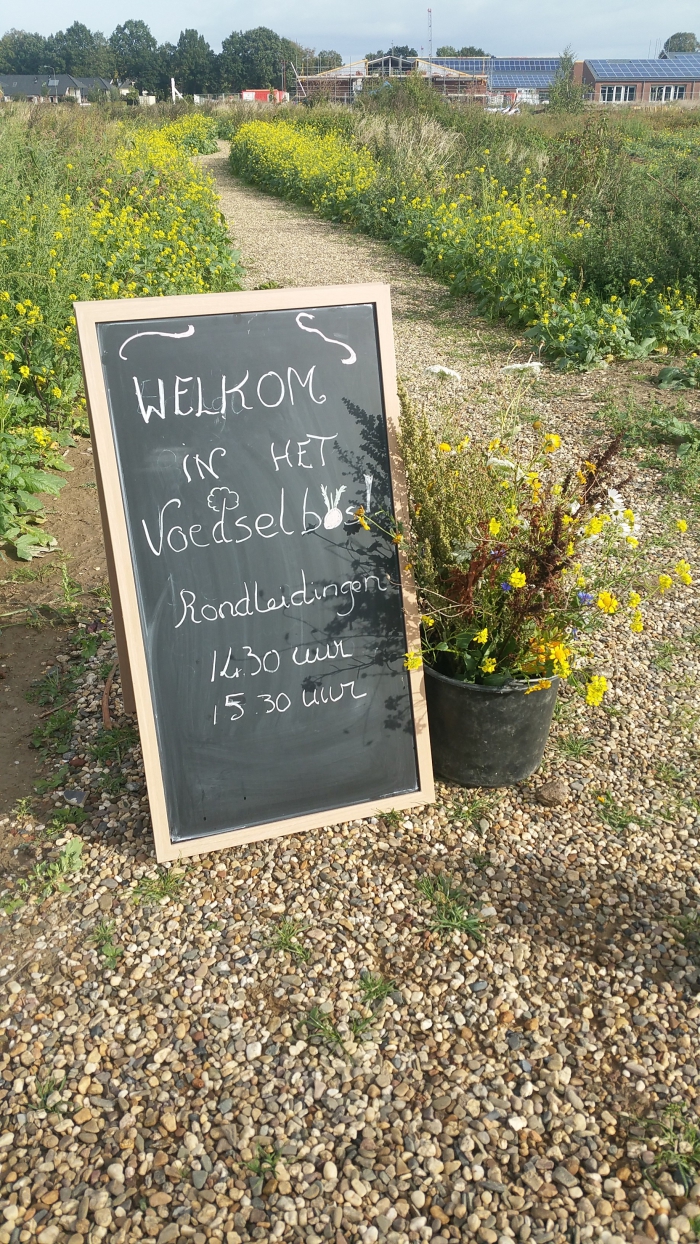 WELKOM
IN HET
Voedselbos!
Rondleidingen
14.30 uur
15.30 uur